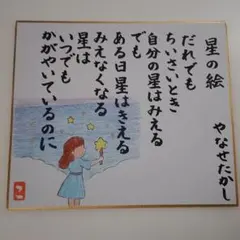 星の絵
やなせたかし
だれでも
ちいさいとき
自分の星はみえる
でも
ある日星はきえる
みえなくなる
星は
いつでも
かがやいているのに